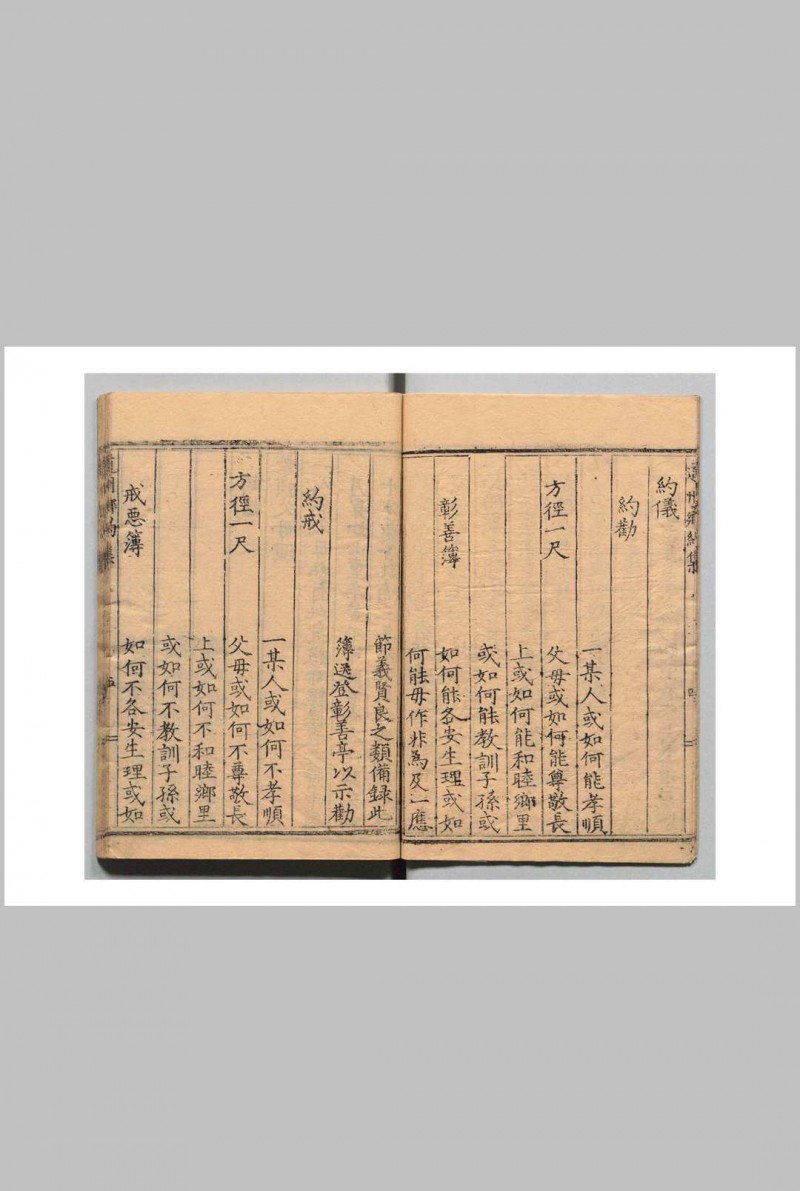 約儀
約勸
一某人或如何能孝順
方徑一尺
父母或如何能尊敬長
上或如何能和睦鄉里
或如何能教訓子孫或
彰善簿
如何能各安生理或如
何能毋作非為及一應
節義賢良之類備錄此
簿送登彰善亭以示勸
約戒
一某人或如何不孝順
方徑一尺
父母或如何不尊敬長
上或如何不和睦鄉里
或如何不教訓子孫或
戒惡簿
如何不各安生理或如